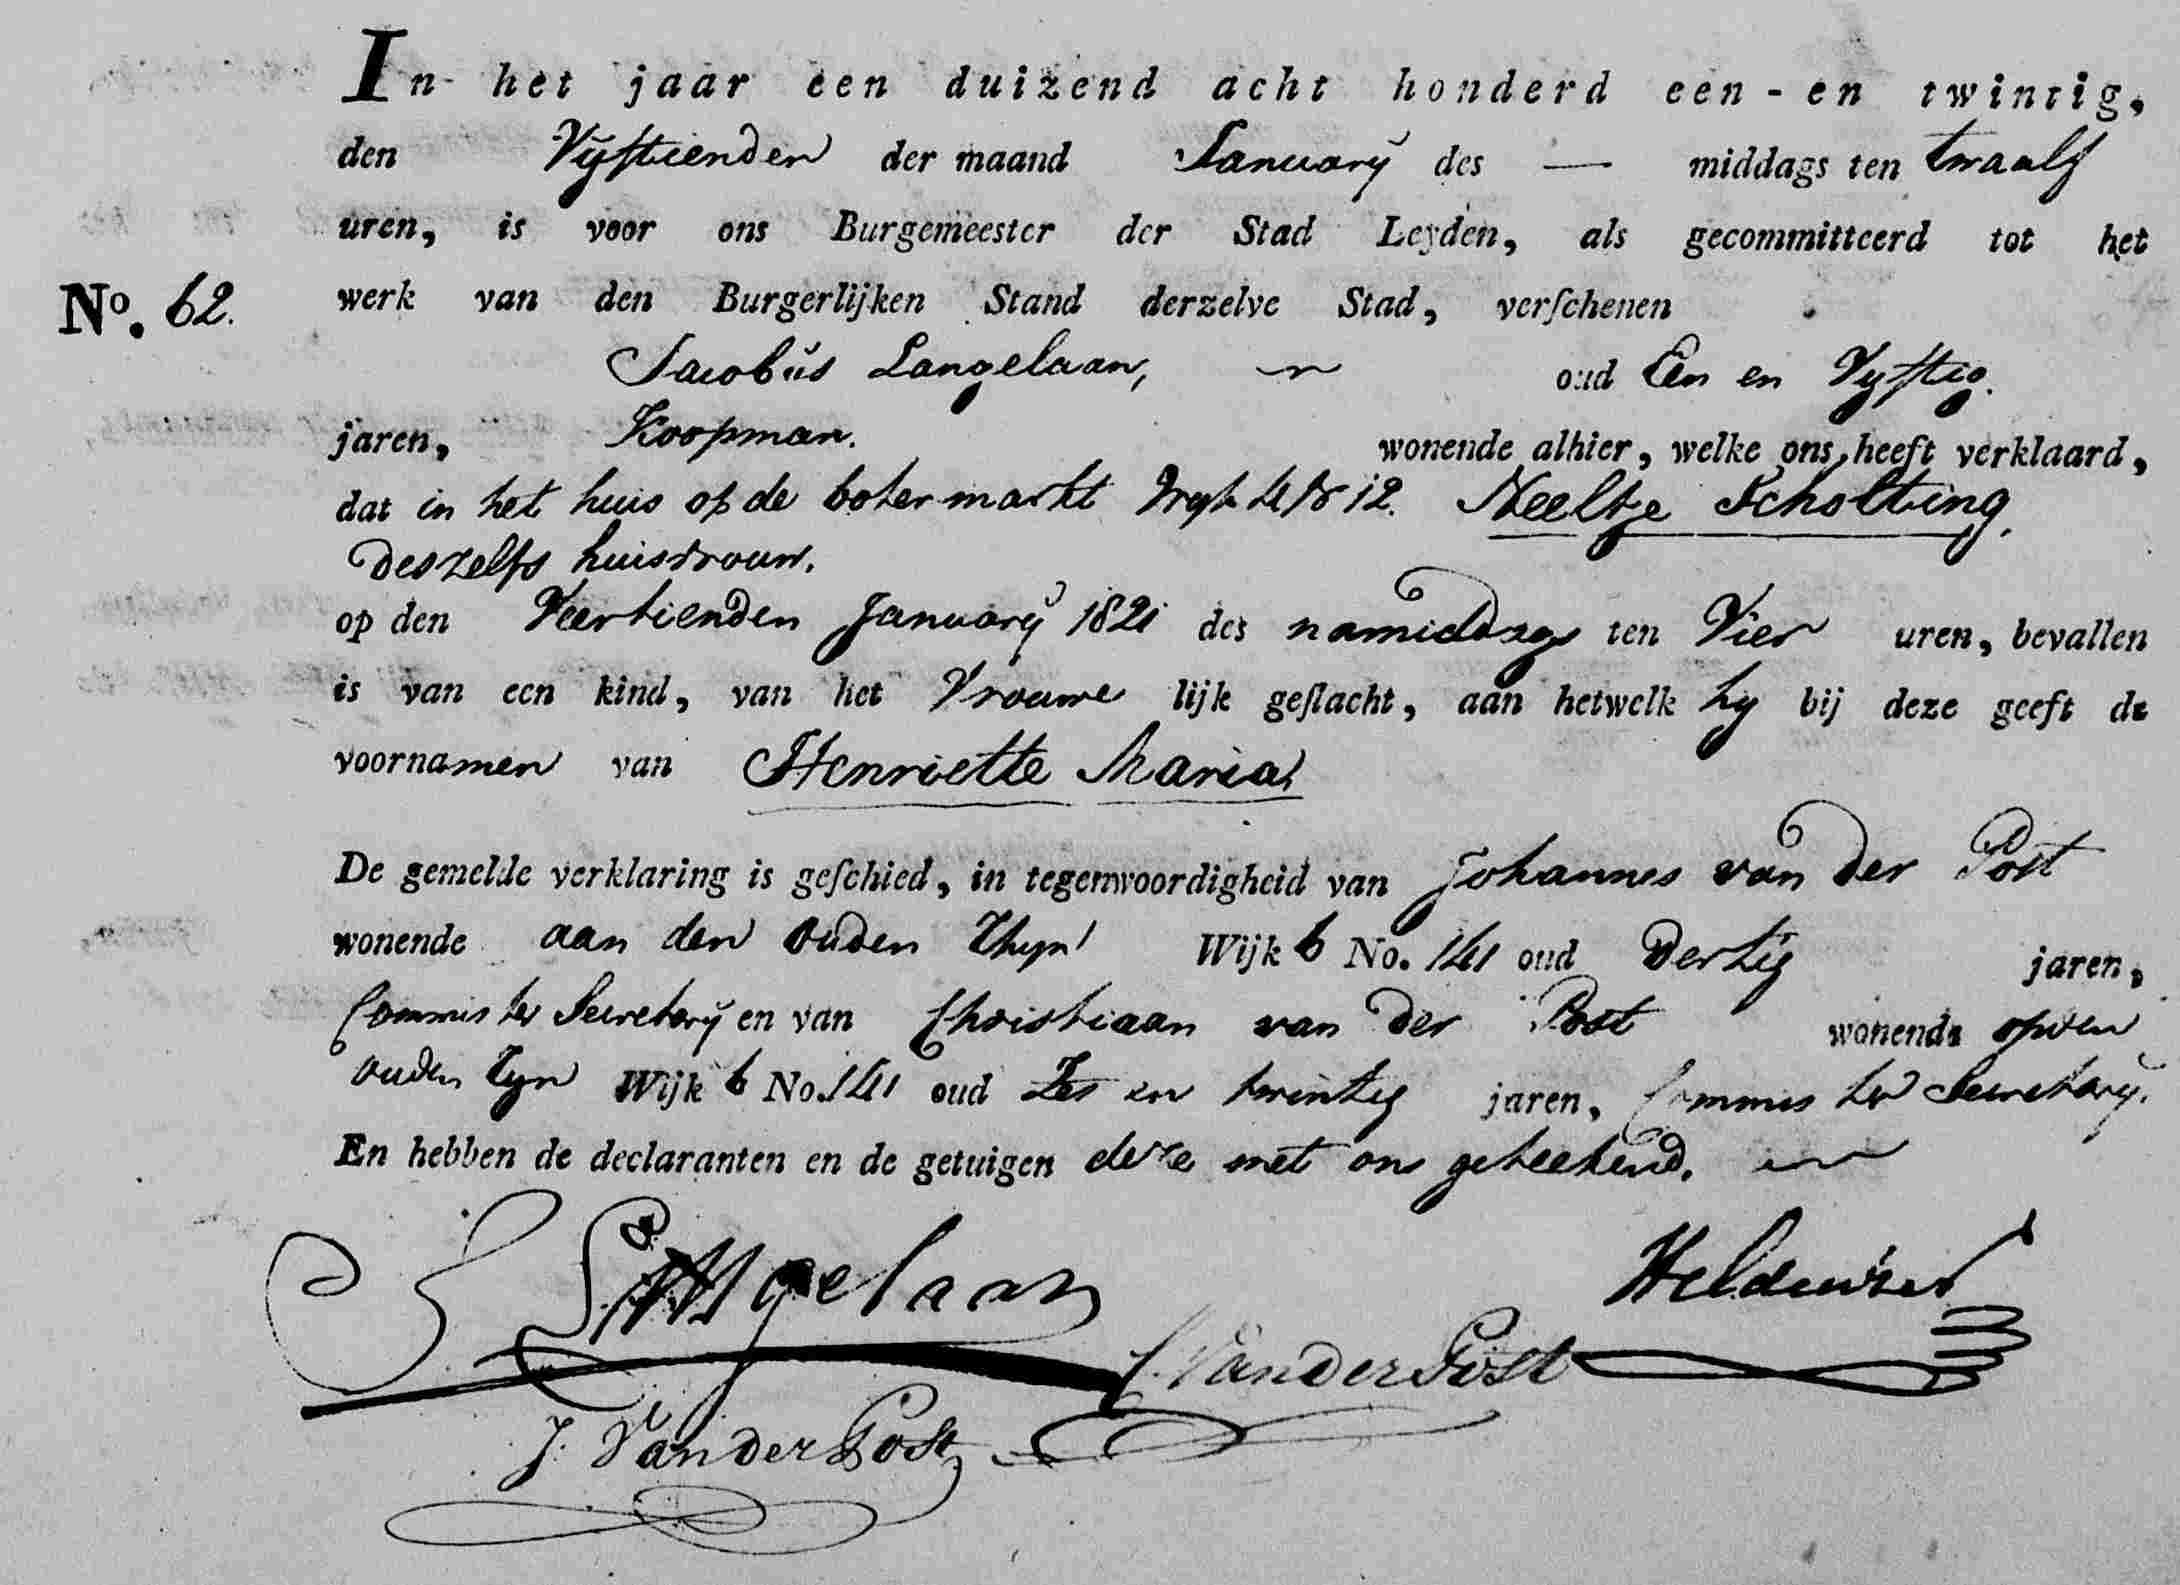 In het jaar een duizend acht honderd een-en twintig,
den Vyftienden der maand January des — middags ten twaalf
uren, is voor ons Burgemeester der Stad Leyden, als gecommitteerd tot het
No. 62. werk van den Burgerlijken Stand derzelve Stad, verſchenen
Jacobus Langelaan, oud Een en Vyftig.
jaren, Koopman. wonende alhier, welke ons heeft verklaard,
dat in het huis op de botermarkt Wyk 4 N 12. Neeltje Scholting,
deszelfs huisvrouw.
op den Veertienden January 1821 des namiddags ten Vier uren, bevallen
is van een kind, van het Vrouwe lijk geſlacht, aan hetwelk hy bij deze geeft de
voornamen van Henriette Maria,
De gemelde verklaring is geſchied, in tegenwoordigheid van Johannes van der Post
wonende aan den ouden Rhyn Wijk 6 No. 141 oud dertig jaren,
Commis ter Secretary en van Christiaan van der Post wonende op den
ouden Ryn Wijk 6 No. 141 oud Zes en twintig jaren, Commis ter Secretary.
En hebben de declaranten en de getuigen deze met ons geteekend.
Langelaan
C. Van der Post
J. Van der Post